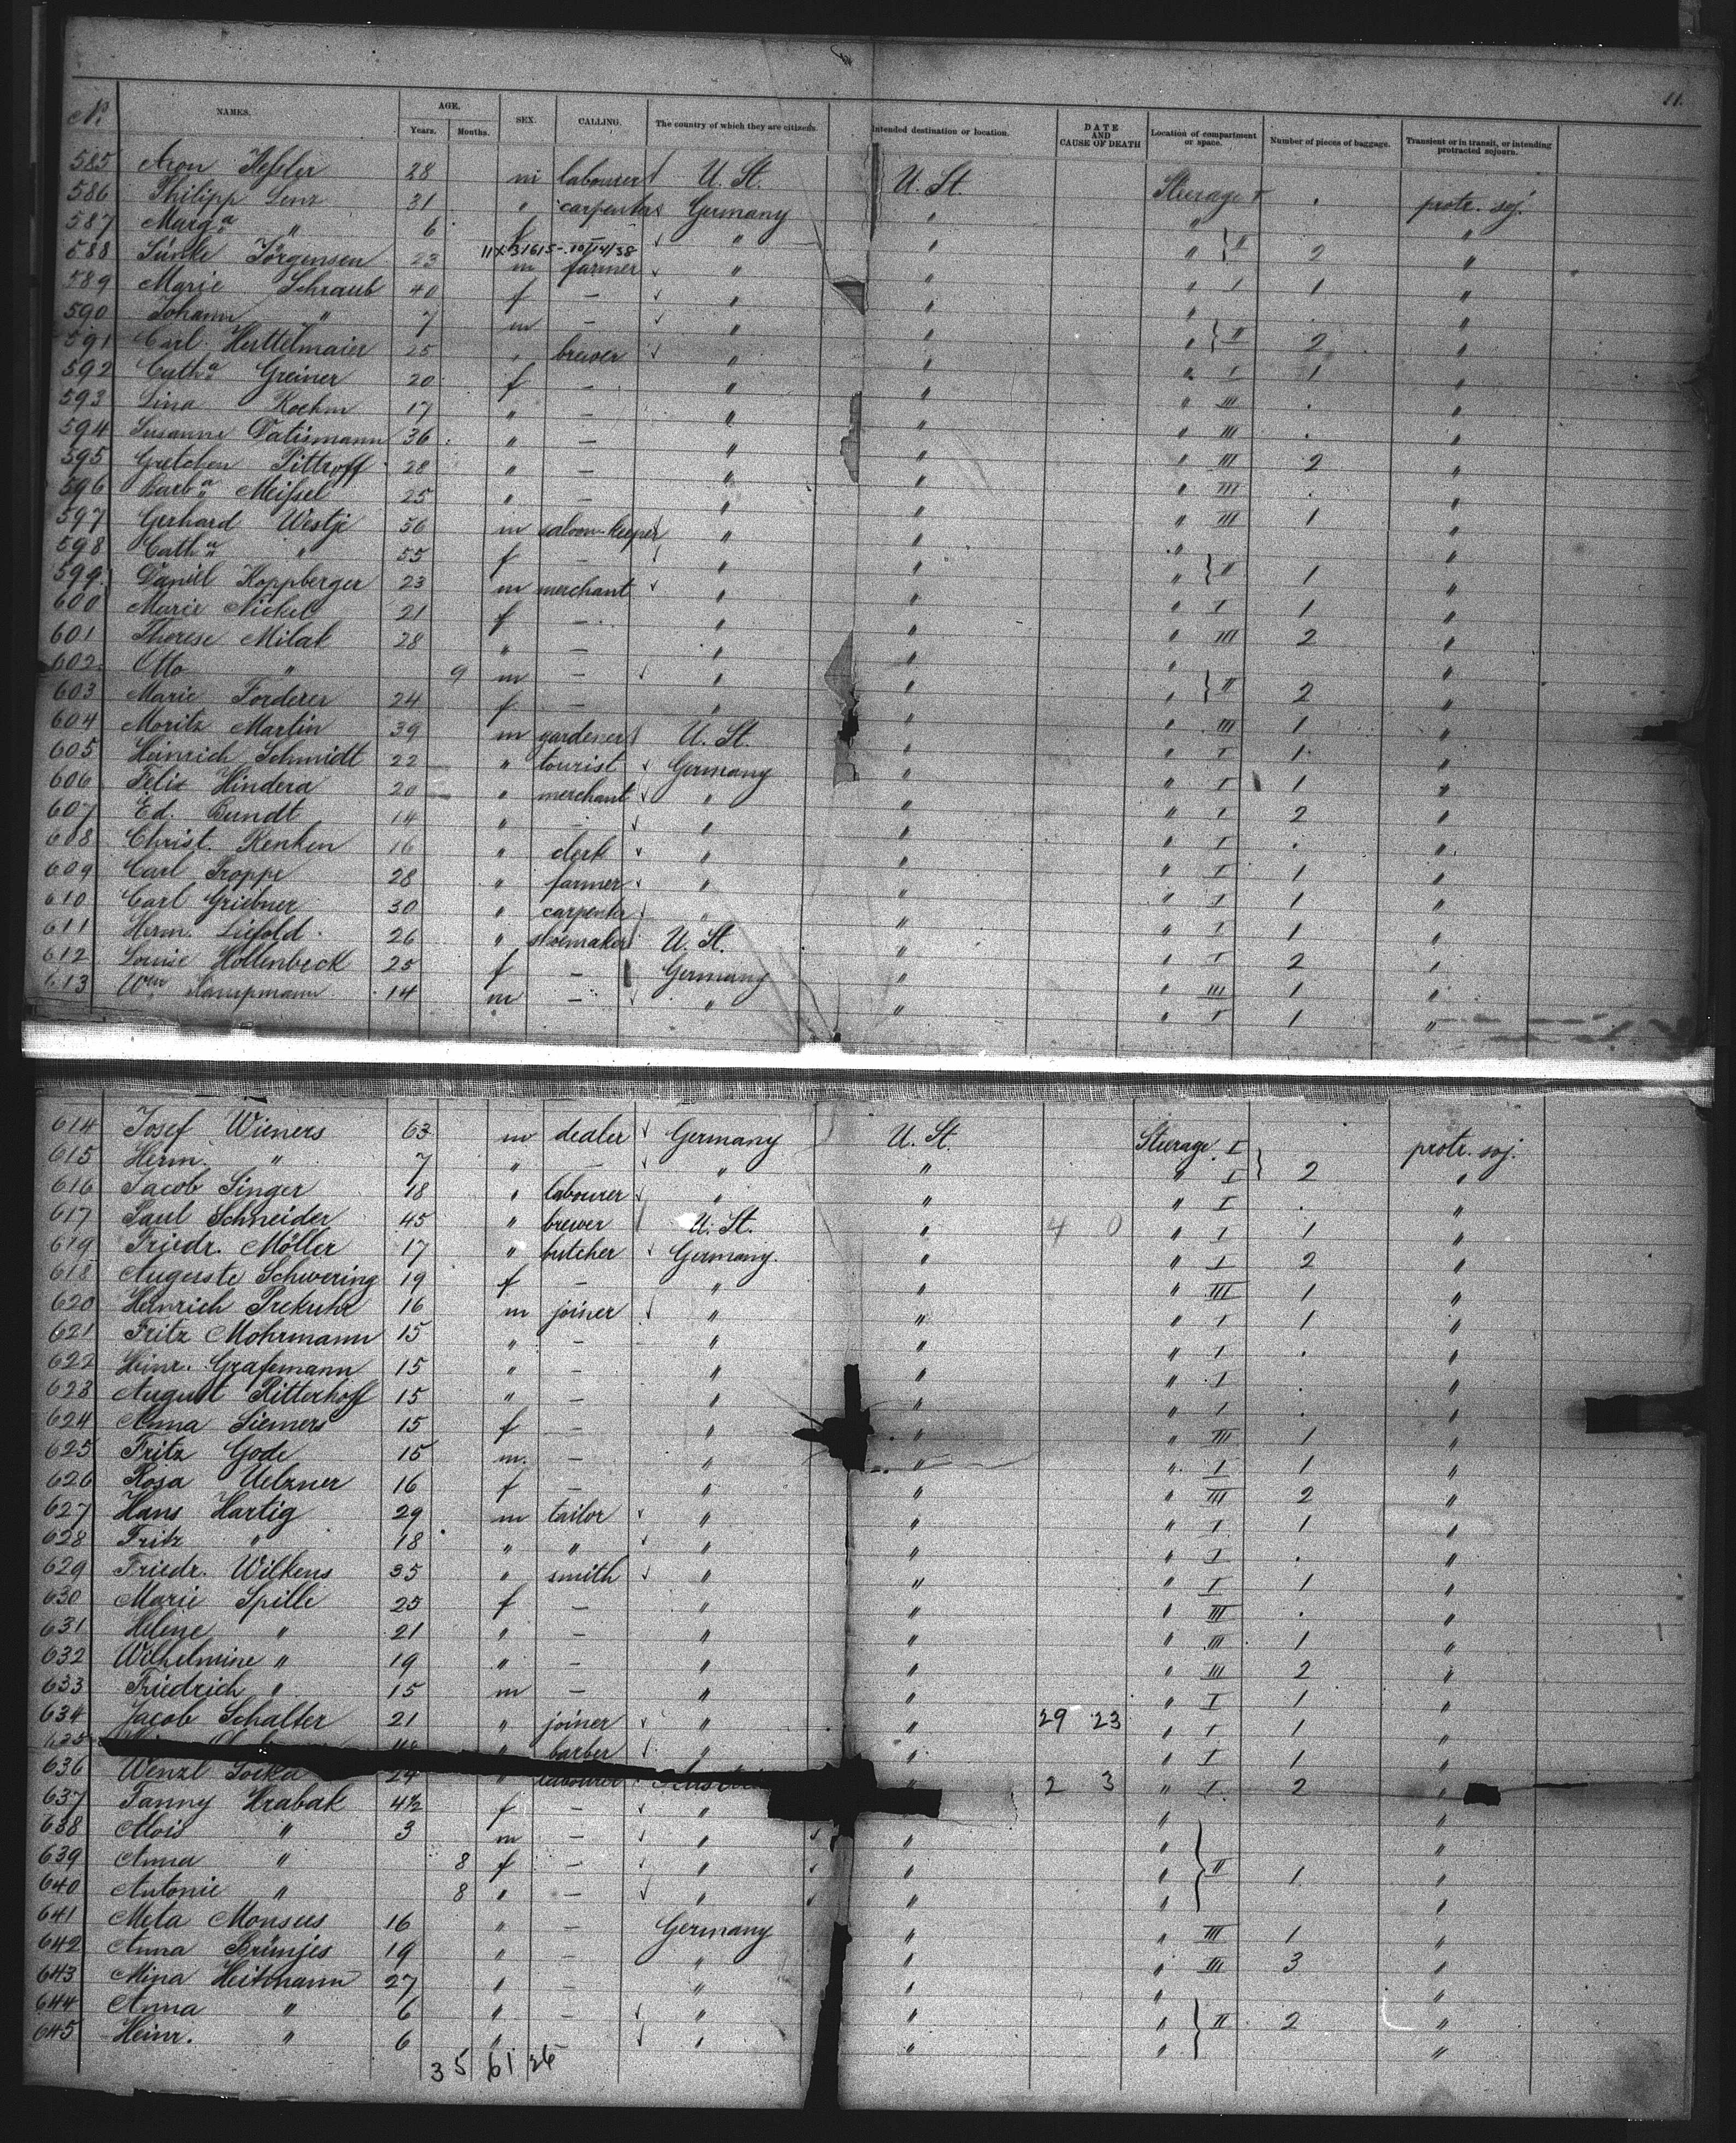 11.
No. NAMES. AGE. Years. Months. SEX. CALLING. The country of which they are citizens. Intended destination or location. DATE AND CAUSE OF DEATH Location of compartment or space. Number of pieces of baggage. Transient or in transit, or intending protracted sojourn.
585 Aron Keßler 28 m labourer U. St. U. St. Steerage I . protr. soj.
586 Philipp Lenz 31 " carpenter Germany " " "
587 Marga " 6 f – " " " } II 2 "
11x31615-10/14/38
588 Sünke Jörgensen 23 m farmer " " " I 1 "
589 Marie Schraub 40 f – " " " "
590 Johann " 7 m – " " " } II 2 "
591 Carl Huttelmaier 25 " brewer " " " I 1 "
592 Catha Greiner 20 f – " " " III . "
593 Lina Roehm 17 " – " " " III . "
594 Susanne Datismann 36 " – " " " III 2 "
595 Gretchen Pittroff 28 " – " " " III . "
596 Barba Meißel 25 " – " " " III 1 "
597 Gerhard Westje 56 m saloon-keeper " " " "
598 Catha " 55 f – " " " } II 1 "
599 Daniel Koppberger 23 m merchant " " " I 1 "
600 Marie Nickel 21 f – " " " III 2 "
601 Therese Milak 28 " – " " " "
602 Otto " 9 m – " " " } II 2 "
603 Marie Forderer 24 f – " " " III 1 "
604 Moritz Martin 39 m gardener U. St. " " I 1 "
605 Heinrich Schmidt 22 " tourist Germany " " I 1 "
606 Felix Hindera 20 " merchant " " " I 2 "
607 Ed. Bundt 14 " – " " " I . "
608 Christ. Renken 16 " clerk " " " I 1 "
609 Carl Troppe 28 " farmer " " " I 1 "
610 Carl Griebner 30 " carpenter " " " I 1 "
611 Herm. Liefold 26 " shoemaker U. St. " " I 2 "
612 Louise Hollenbeck 25 f – Germany " " III 1 "
613 Wm Kampmann 14 m – " " " I 1 "
614 Josef Wieners 63 m dealer Germany U. St. Steerage I protr. soj.
615 Herm. " 7 " – " " " I } 2 "
616 Jacob Singer 18 " labourer " " " I . "
617 Paul Schneider 45 " brewer U. St. " 4 0 " I 1 "
619 Friedr. Möller 17 " butcher Germany. " " I 2 "
618 Auguste Schwering 19 f – " " " III "
620 Heinrich Prekuhr 16 m joiner " " " I 1 "
621 Fritz Mohrmann 15 " – " " " I . "
622 Heinr. Grafemann 15 " – " " " I . "
623 August Ritterhoff 15 " – " " " I . "
624 Anna Siemers 15 f – " " " III 1 "
625 Fritz Gode 15 m. – " " " I 1 "
626 Rosa Uelzner 16 f – " " " III 2 "
627 Hans Hartig 29 m tailor " " " I 1 "
628 Fritz " 18 " " " " " I . "
629 Friedr. Wilkens 35 " smith " " " I 1 "
630 Marie Spille 25 f – " " " III . "
631 Helene " 21 " – " " " III 1 "
632 Wilhelmine " 19 " – " " " III 2 "
633 Friedrich " 15 m – " " " I 1 "
634 Jacob Schalter 21 " joiner " " 29 23 " I 1 "
635 " barber " " " I 1 "
636 Wenzl 24 " labourer " 2 3 " I 2 "
637 Fanny Hrabak 42 f – " " "
638 Alois " 3 m – " " " "
639 Anna " 8 f – " " " } II 1 "
640 Antonie " 8 " – " " " "
641 Meta Monsees 16 " – Germany " " III 1 "
642 Anna Brünjes 19 " – " " " III 3 "
643 Mina Heitmann 27 " – " " " "
644 Anna " 6 " – " " " } II 2 "
645 Heinr. " 6 " " " " "
35 61 26